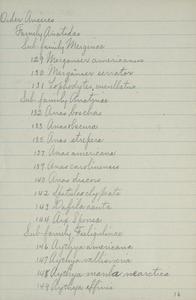 Order Anseres
Family Anatidae
Sub family Merginae
129 Merganser americanus
130 Merganser serrator
131 Lophodytes cucullatus
Sub family Anatinae
132 Anas boschas
133 Anas obscura
135 Anas strepera
137 Anas americana
139 Anas carolinensis
140 Anas discors
142 Spatula clypeata
143 Dafila acuta
144 Aix sponsa
Sub family Fuligulinae
146 Aythya americana
147 Aythya vallisneria
148 Aythya marila nearctica
149 Aythya affinis
16